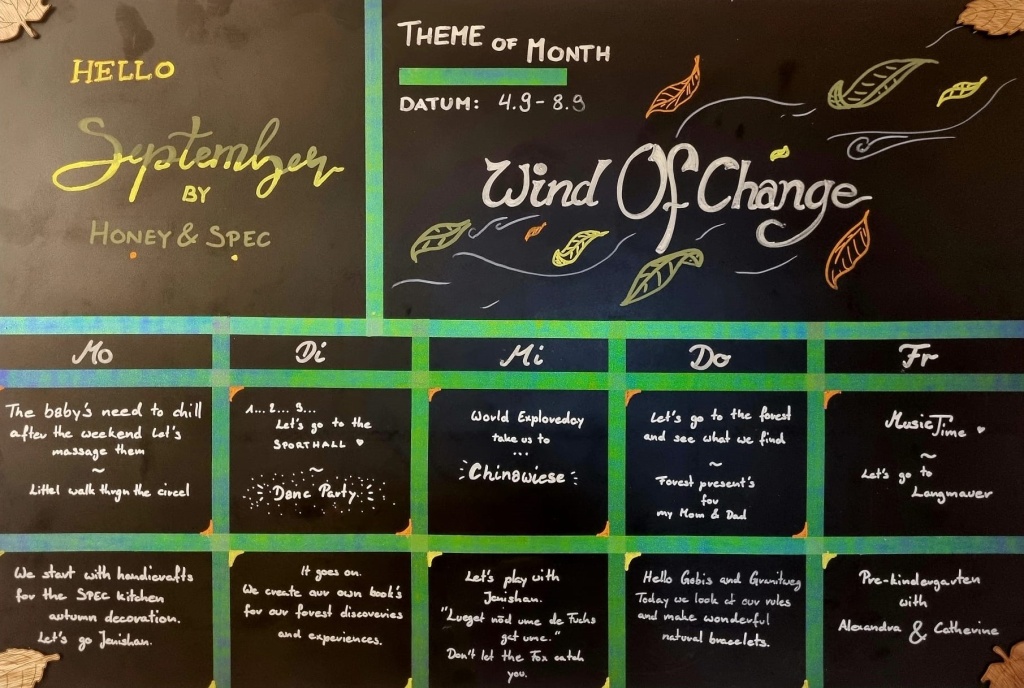 HELLO
September
BY
HONEY & SPEC
THEME OF MONTH
DATUM: 4.9-8.9
Wind Of Change
Mo
Di
Mi
Do
Fr
The baby's need to chill
after the weekend Let's
massage them
~
Littel walk thrgn the circel
1... 2... 3...
Let's go to the
SPORTHALL ♥
~
Danc Party
World Exploreday
take us to
...
Chinawiese
Let's go to the forest
and see what we find
~
Forest present's
for
my Mom & Dad
Music Time ♥
~
Let's go to
Langmauer
We start with handicrafts
for the SPEC kitchen
autumn decoration.
Let's go Jenishan.
It goes on.
We create our own book's
for our forest discoveries
and experiences.
Let's play with
Jenishan.
"Lueget nöd ume de Fuchs
got ume."
Don't let the Fox catch
you.
Hello Gobis and Granitweg
Today we look at our rules
and make wonderful
natural bracelets.
Pre-kindergarten
with
Alexandra & Catherine